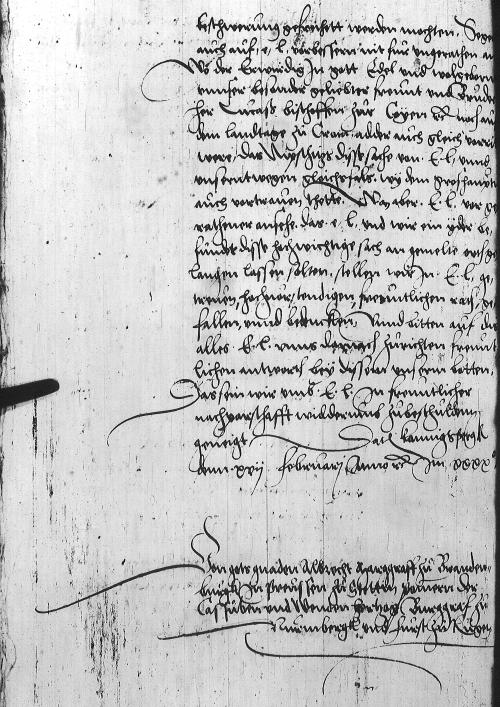 beschwerung gefreihett werden mochten. Sege
auch auf e. l. vorbessern nit für ungerathen an
Wo der Erwirdig In gott Edel und wolgeborn
unnser besonder geliebter freunt und Bruder
her Lucass bischoffen zur Coyen etc noch auf
dem landtage zu Crocaw adder auch gleich vorru
were, das Nyyschuzs disse sache von E. l. unnd
unsernt wegen gleichsfals, wy dem groshaupt
auch vortrauen thette. Wan aber E. l. vor ge
rathener ansehe das e. l. und wir ein yder be
sundr disse hochwichtige sach an gemelte ortt ge
langen lassen solten, stellen wirs In E. l. ge
treuen, hochvorstendigen, freuntlichen rath, ge
fallen, unnd bedencken, Unnd bitten auf dis
alles E. l. unns dernach zurichten freunt
lichen antworts bey dissem unserm botten,
Das sein wir umb E. l. In freuntlicher
nachparschafft widderumb zubeschulden
geneigt. Dat. konnigspergk
denn xxvij februarij Anno etc Im xxxx
Von gots gnaden Albrecht Marggraff zu Branden-
burgk In Preussen zu Stettin pomern der
Cassuben und Wenden Hertzog Burggraf zu
Nurembergk und furst zu Rugen